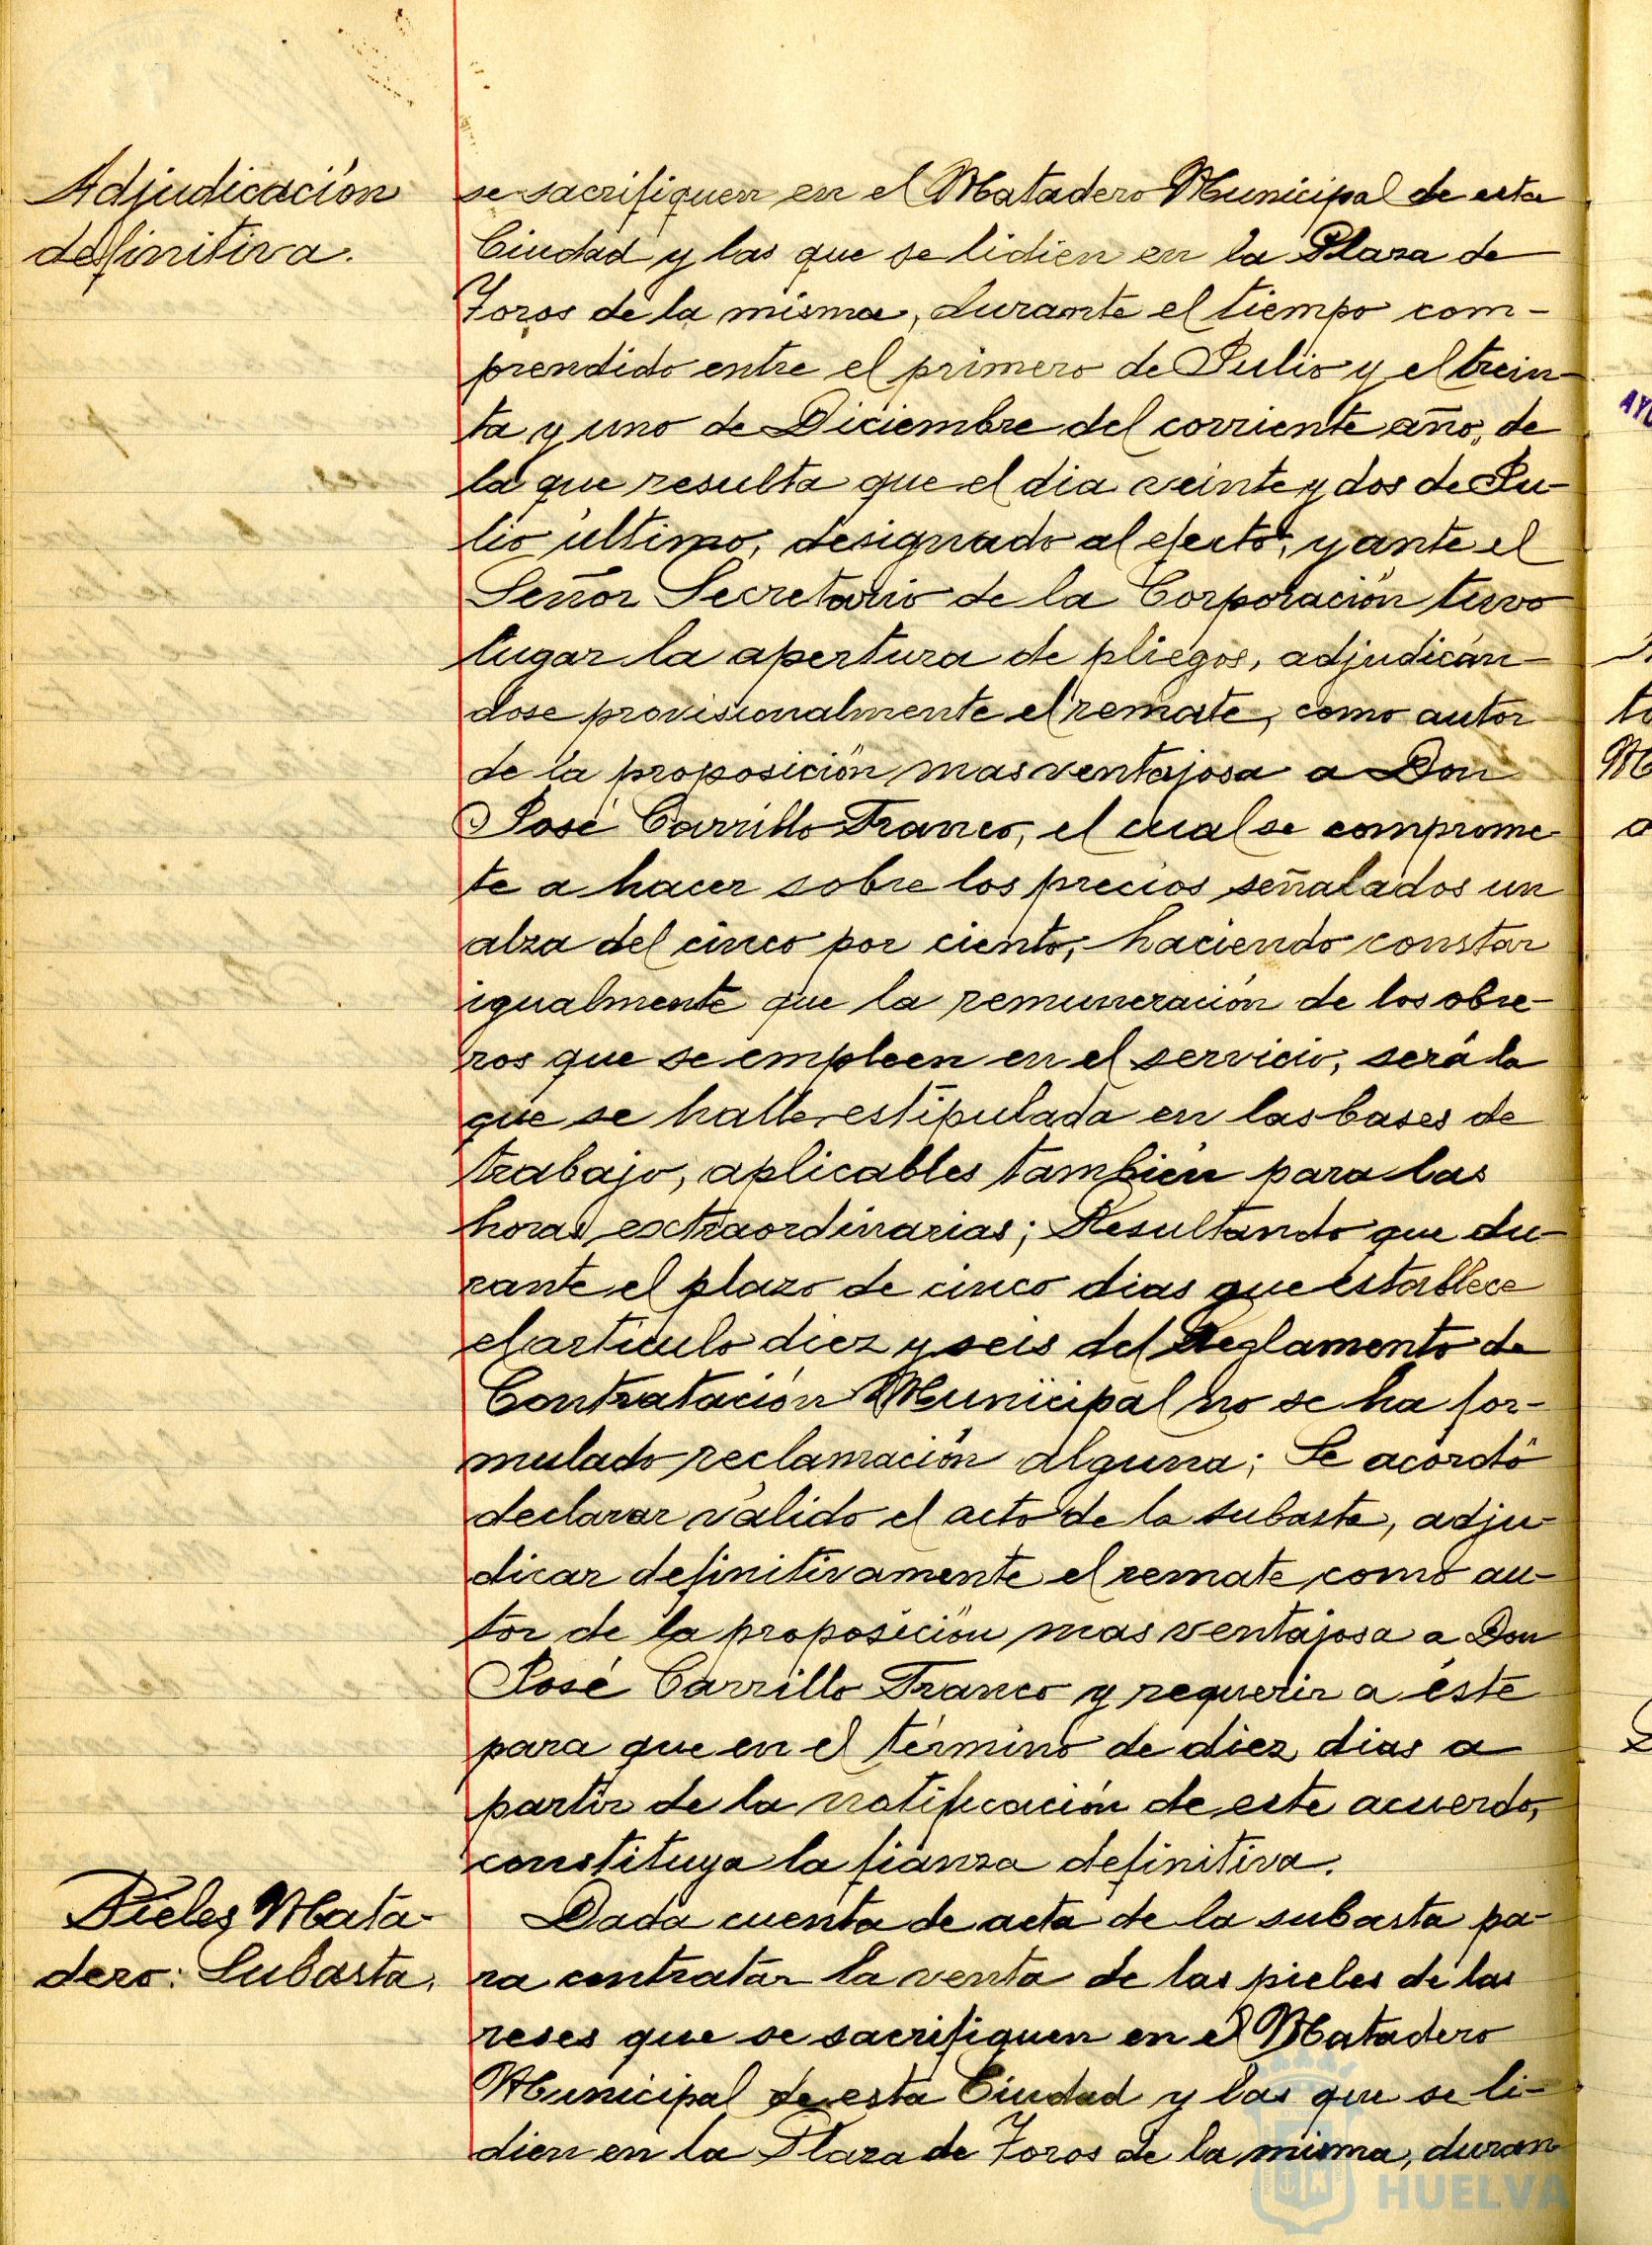 Adjudicación
definitiva.
se sacrifiquen en el Matadero Municipal de esta
Ciudad y las que se lidien en la Plaza de
Toros de la misma, durante el tiempo com-
prendido entre el primero de Julio y el trein-
ta y uno de Diciembre del corriente año, de
la que resulta que el dia veinte y dos de Ju-
lio último, designado al efecto, y ante el
Señor Secretario de la Corporación tuvo
lugar la apertura de pliegos, adjudicán-
dose provisionalmente el remate, como autor
de la proposición mas ventajosa a Don
José Carrillo Franco, el cual se comprome-
te a hacer sobre los precios señalados un
alza del cinco por ciento, haciendo constar
igualmente que la remuneración de los obre-
ros que se empleen en el servicio, será la
que se halle estipulada en las bases de
trabajo, aplicables también para las
horas extraordinarias; Resultando que du-
rante el plazo de cinco dias que establece
el artículo diez y seis del Reglamento de
Contratación Municipal no se ha for-
mulado reclamación alguna; Se acordó
declarar válido el acto de la subasta, adju-
dicar definitivamente el remate como au-
tor de la proposición mas ventajosa a Don
José Carrillo Franco y requerir a éste
para que en el término de diez dias a
partir de la notificación de este acuerdo,
constituya la fianza definitiva.
Pieles Mata-
dero: Subasta.
Dada cuenta de acta de la subasta pa-
ra contratar la venta de las pieles de las
reses que se sacrifiquen en el Matadero
Municipal de esta Ciudad y las que se li-
dien en la Plaza de Toros de la misma, duran
HUELVA